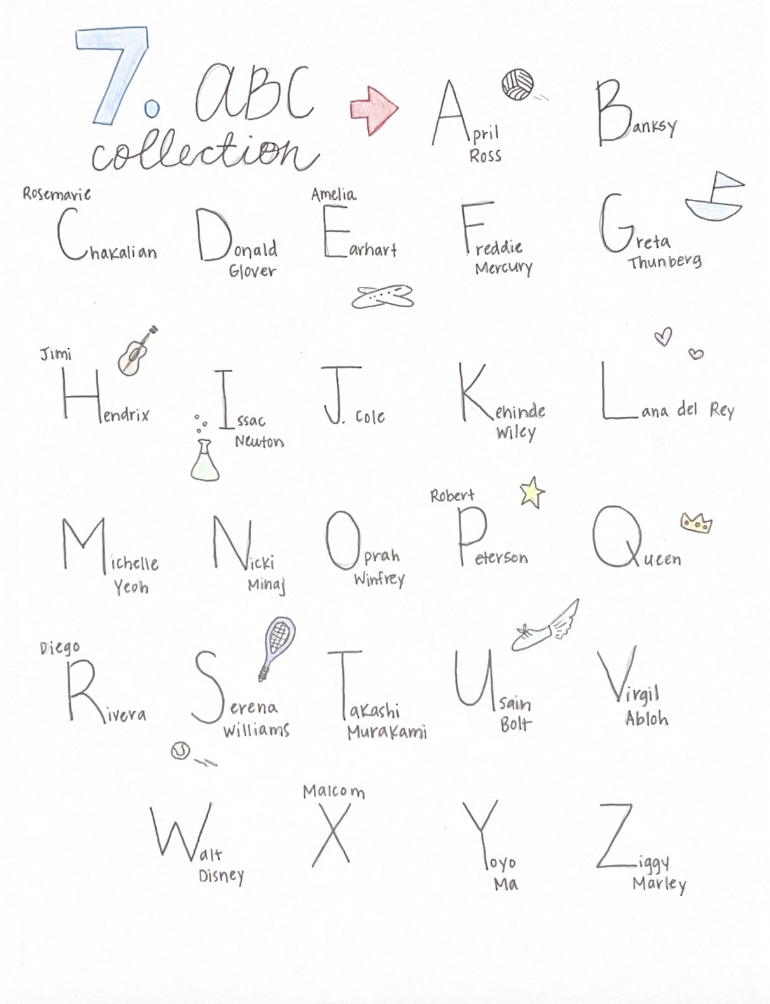 7. ABC
collection
April
Ross
Banksy
Rosemarie
Chakalian
Donald
Glover
Amelia
Earhart
Freddie
Mercury
Greta
Thunberg
Jimi
Hendrix
Issac
Newton
J. Cole
Kehinde
Wiley
Lana del Rey
Michelle
Yeoh
Nicki
Minaj
Oprah
Winfrey
Robert
Peterson
Queen
Diego
Rivera
Serena
Williams
Takashi
Murakami
Usain
Bolt
Virgil
Abloh
Walt
Disney
Malcom
X
Yoyo
Ma
Ziggy
Marley